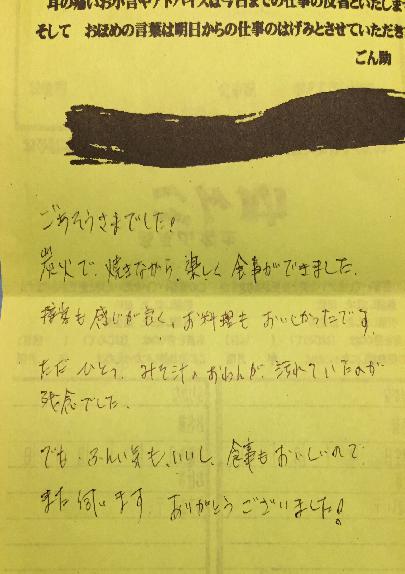 耳の痛いお小言やアドバイスは今日までの仕事の反省といたしま
そして　おほめの言葉は明日からの仕事のはげみとさせていただき
ごん助
ごちそうさまでした!
炭火で、焼きながら、楽しく食事ができました。
接客も感じが良く、お料理もおいしかったです。
ただひとつ、みそ汁のおわんが、汚れていたのが
残念でした。
でも、ふんい気も、いいし、食事もおいしいので
また伺います。ありがとうございました!